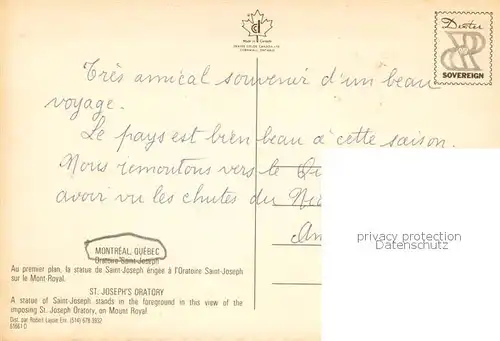 Made in Canada
Dexter
SOVEREIGN
Très amical souvenir d'un beau
voyage.
Le pays est bien beau à cette saison.
Nous remontons vers le
avoir vu les chutes du
MONTRÉAL, QUÉBEC
Oratoire Saint-Joseph
Au premier plan, la statue de Saint-Joseph érigée à l'Oratoire Saint-Joseph
sur le Mont-Royal.
ST. JOSEPH'S ORATORY
A statue of Saint-Joseph stands in the foreground in this view of the
imposing St. Joseph Oratory, on Mount Royal.
Dist. par Robert Lajoie Enr. (514) 678 3932
privacy protection
Datenschutz